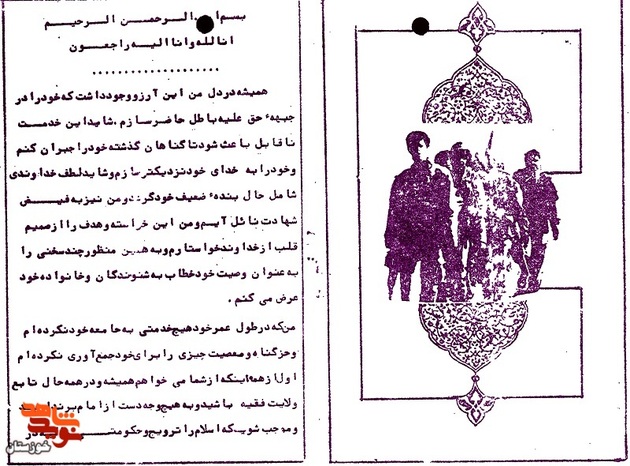 بسم الله الرحمن الرحیم
انا لله و انا الیه راجعون
همیشه در دل من این آرزو وجود داشت که خود را در
جبهه حق علیه باطل حاضر سازم. شاید این خدمت
ناقابل باعث شود تا گناهان گذشته خود را جبران کنم
و خود را به خدای خود نزدیکتر سازم و شاید لطف خداوندی
شامل حال بنده ضعیف خود گردد و من نیز به فیض
شهادت نائل آیم و من این خواسته و هدف را از صمیم
قلب از خداوند خواستارم و به همین منظور چند سخنی را
به عنوان وصیت خود خطاب به شنوندگان و خانواده خود
عرض می کنم.
من که در طول عمر خود هیچ خدمتی به جامعه خود نکرده ام
و جز گناه و معصیت چیزی را برای خود جمع آوری نکرده ام
اول از همه اینکه از شما می خواهم همیشه و در همه حال تابع
ولایت فقیه باشید و به هیچ وجه دست از امام برندارید
و موجب شوید که اسلام را ترویج و حکومت در
نوید شاهد
خوزستان